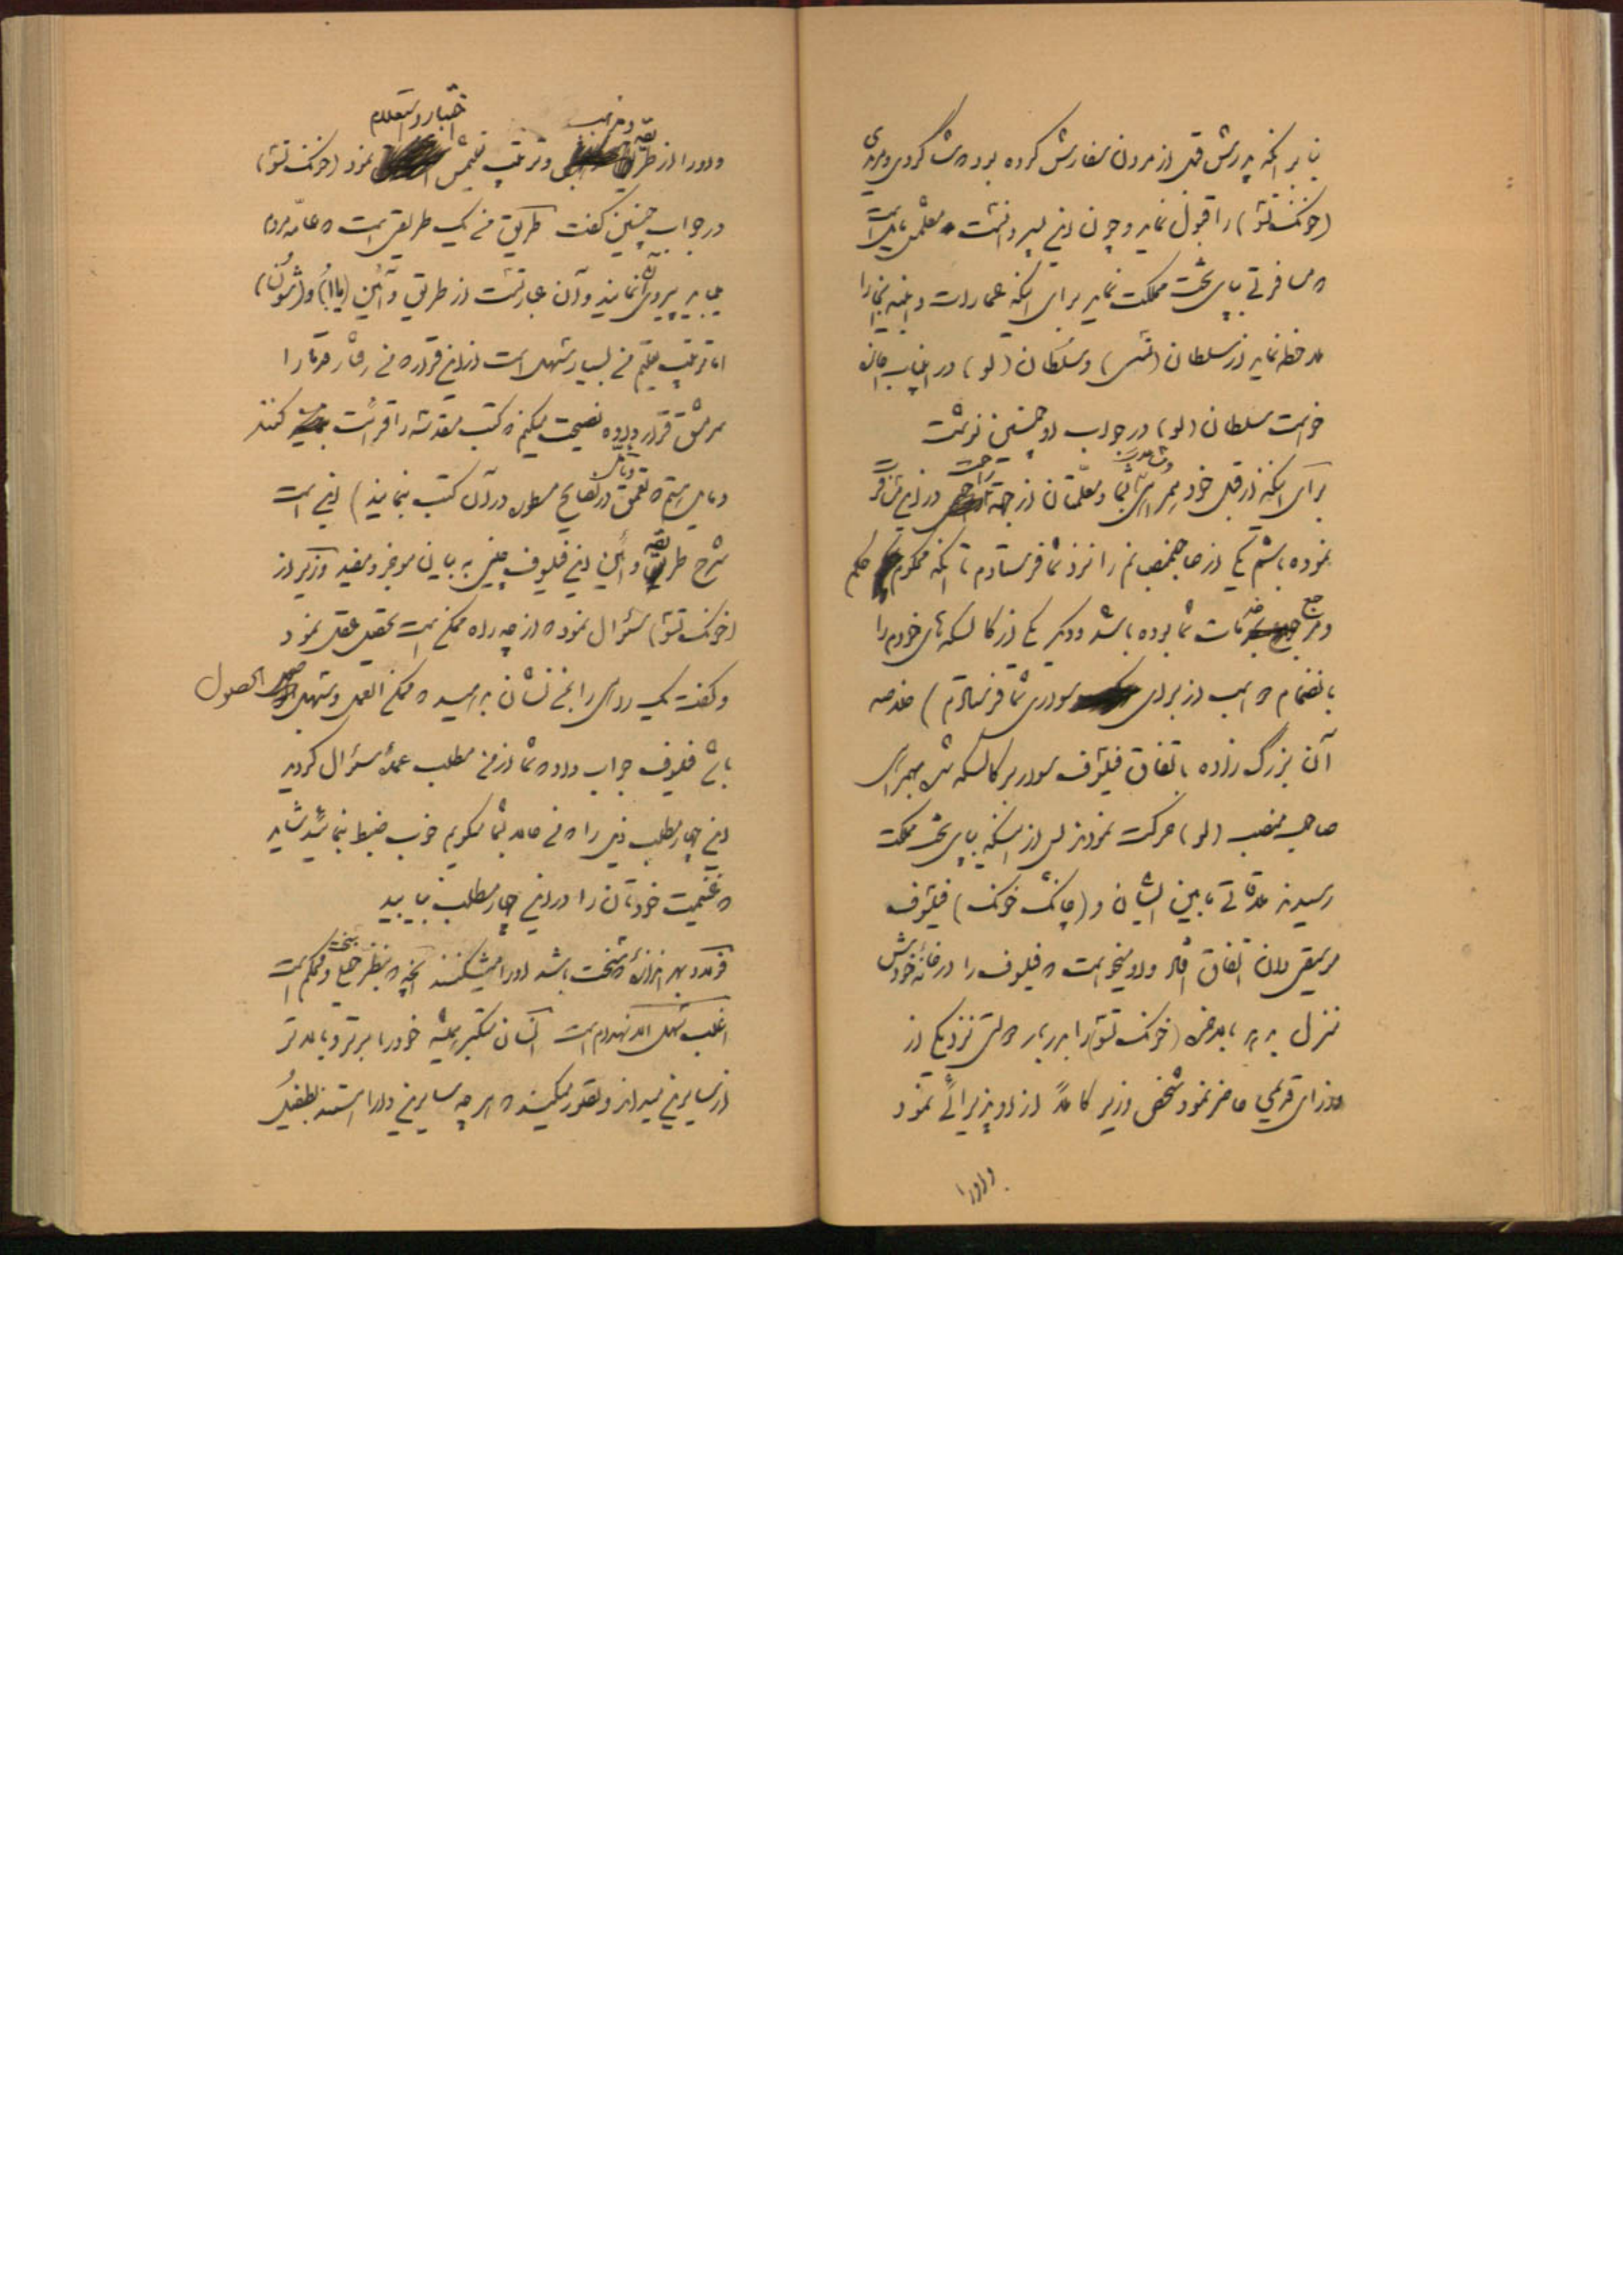 بنا بر آنکه پدرش قبل از مردن سفارش کرده بود که شاگردی و مریدی
(خونک تشو) را قبول نماید و چون این پسر دانست معلمش مایل است
که مسافرتی بپای تخت مملکت نماید برای اینکه عمارات و ابنیه آنجا را
ملاحظه نماید از سلطان و سلطان (لو) در این باب اجازه
خواست سلطان (لو) در جواب او چنین نوشت
برای اینکه از قبل خود همراهی بشما و معلمتان از جهة راحت در این مسافرت
نموده باشم یکی از صاحبمنصبانم را نزد شما فرستادم تا اینکه محکوم حکم
و مرجع خدمات شما بوده باشد و دیگر یکی از کالسکه های خودم را
بانضمام دو اسب از برای سواری شما فرستادم) خلاصه
آن بزرگ زاده باتفاق فیلسوف سوار بر کالسکه شده بهمراهی
صاحب منصب (لو) حرکت نمودند پس از اینکه بپای تخت مملکت
رسیدند ملاقاتی مابین ایشان و (چانک خونک) فیلسوف
موسیقی دان اتفاق افتاد و او میخواست که فیلسوف را در خانهٔ خودش
منزل بدهد بالاخره (خونک تشو) را بدربار دولتی نزد یکی از
وزرای قدیمی حاضر نمود شخص وزیر کاملاً از او پذیرائی نمود
و او را
و او را از طریقه و مذهب و ترتیب تعلیمش اختبار و استعلام نمود (خونک تشو)
در جواب چنین گفت طریق من یک طریقی است که عامهٔ مردم
میباید پیروی آن نمایند و آن عبارتست از طریق و آئین (یااُ) و (شون)
اما ترتیب تعلیم من بسیار سهل است از این قرار که من رفتار قدما را
سرمشق قرار داده نصیحت میکنم که کتب مقدسه را قرائت کنند
و مایل هستم که تعمق و تأمل در نصایح مسطوره در آن کتب بنمایند) این است
شرح طریقه و آئین این فیلسوف چینی به بیان موجز و مفید وزیر از
(خونک تشو) سئوال نمود که از چه راه ممکن است تحصیل عقل نمود
و گفت یک راهی را بمن نشان بدهید که ممکن العمل و سهل الحصول
باشد فیلسوف جواب داد که شما از من مطلب عمدهٔ سئوال کردید
این چهار مطلب ذیل را که من حالا بشما میگویم خوب ضبط بنمائید شاید
که غنیمت خودتان را در این چهار مطلب بیابید
فولاد بهر اندازه که سخت باشد او را میشکنند آنچه که بنظر سخت و محکم است
اغلب سهل الانهدام است انسان متکبر همیشه خود را برتر و بالاتر
از سایرین میداند و تصور میکند که هر چه سایرین دارا هستند بطفیل